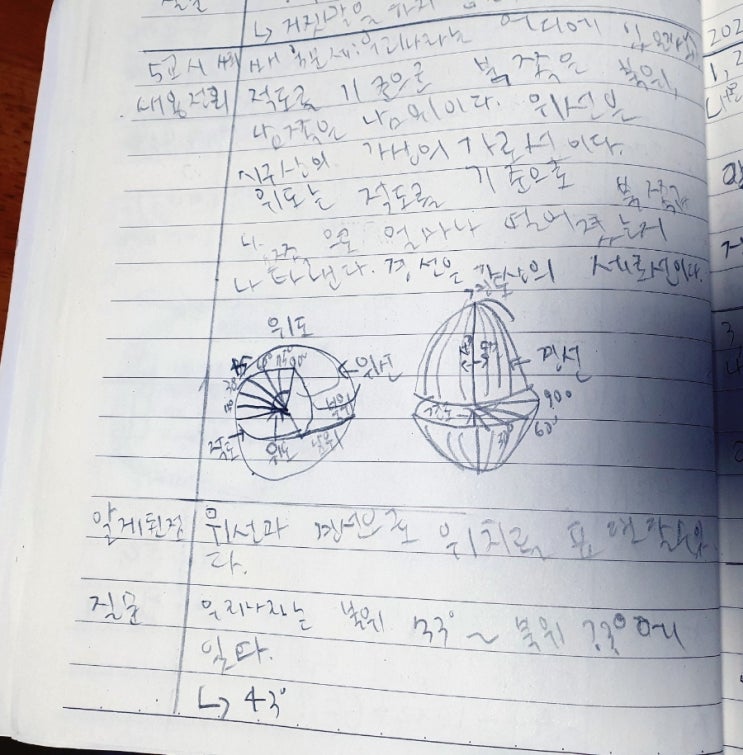 질문
↳ 거짓말을 하지
5교시 배울문제: 우리나라는 어디에 있
내용정리 적도를 기준으로 북쪽은 북위,
남쪽은 남위이다. 위선은
지구상의 가상의 가로선이다.
위도는 적도를 기준으로 북쪽과
쪽으로 얼마나 떨어졌는지
나타낸다. 경선은 상의 세로선이다.
위도
위선
북위
남위
적도
위도
경선
경도
90°
60°
30°
알게된점 위선과 경선으로 위치를 표현할수있
다.
질문 우리나라는 북위 33° ~ 북위 ??°에
있다.
↳ 43°
202
1, 2
3